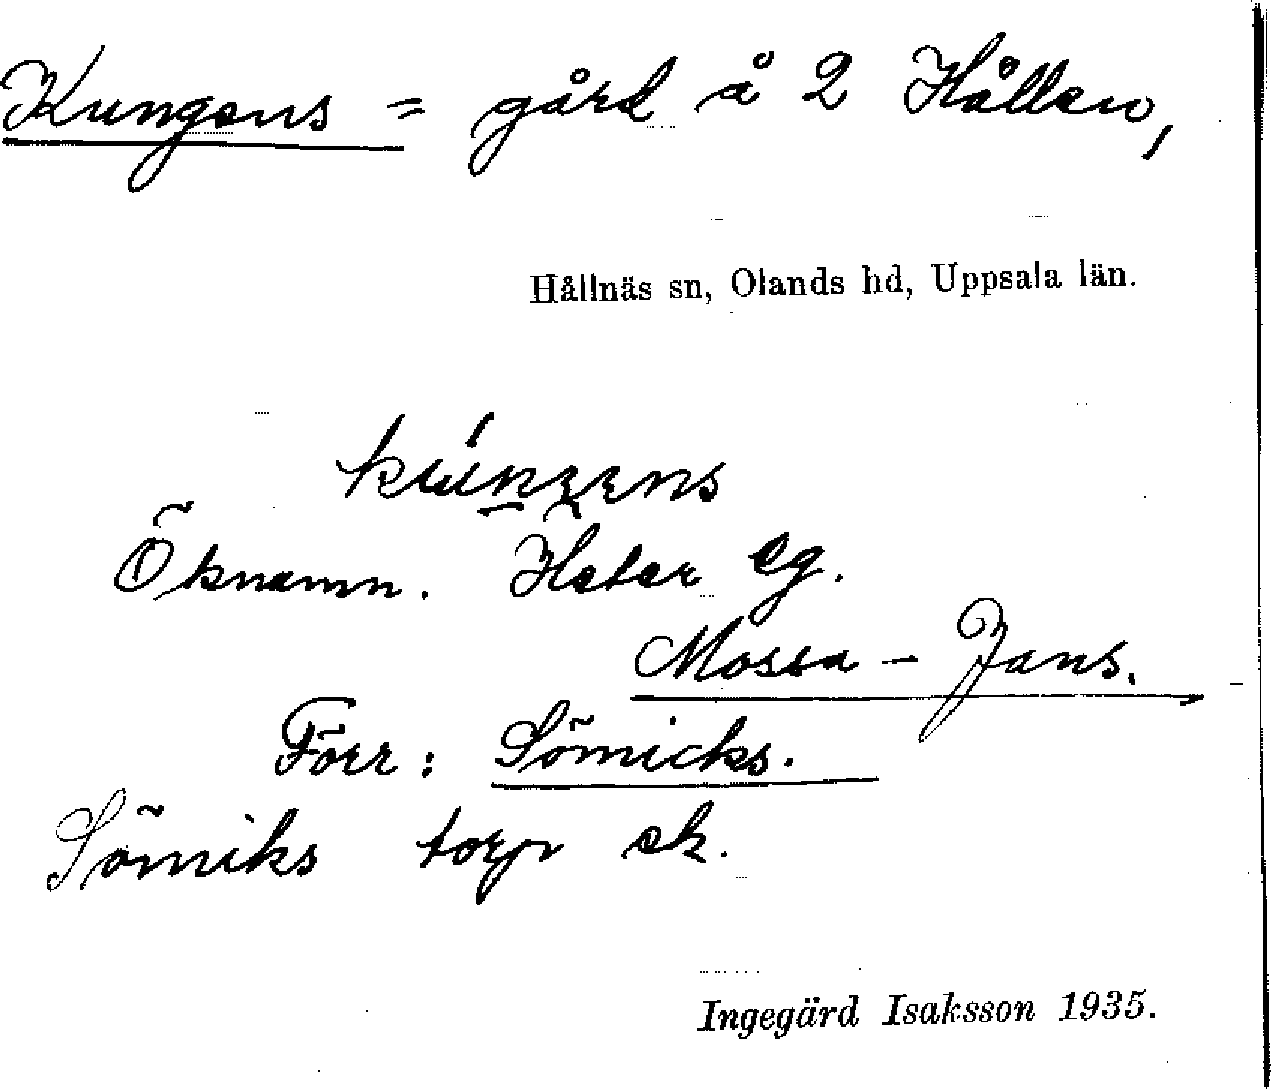 Kungens = gård å 2 Hållen,
Hållnäs sn, Olands hd, Uppsala län.
Öknamn. Heter eg.
Mossa - Jans.
Förr: Sömicks.
Sömiks torp ek.
Ingegärd Isaksson 1935.